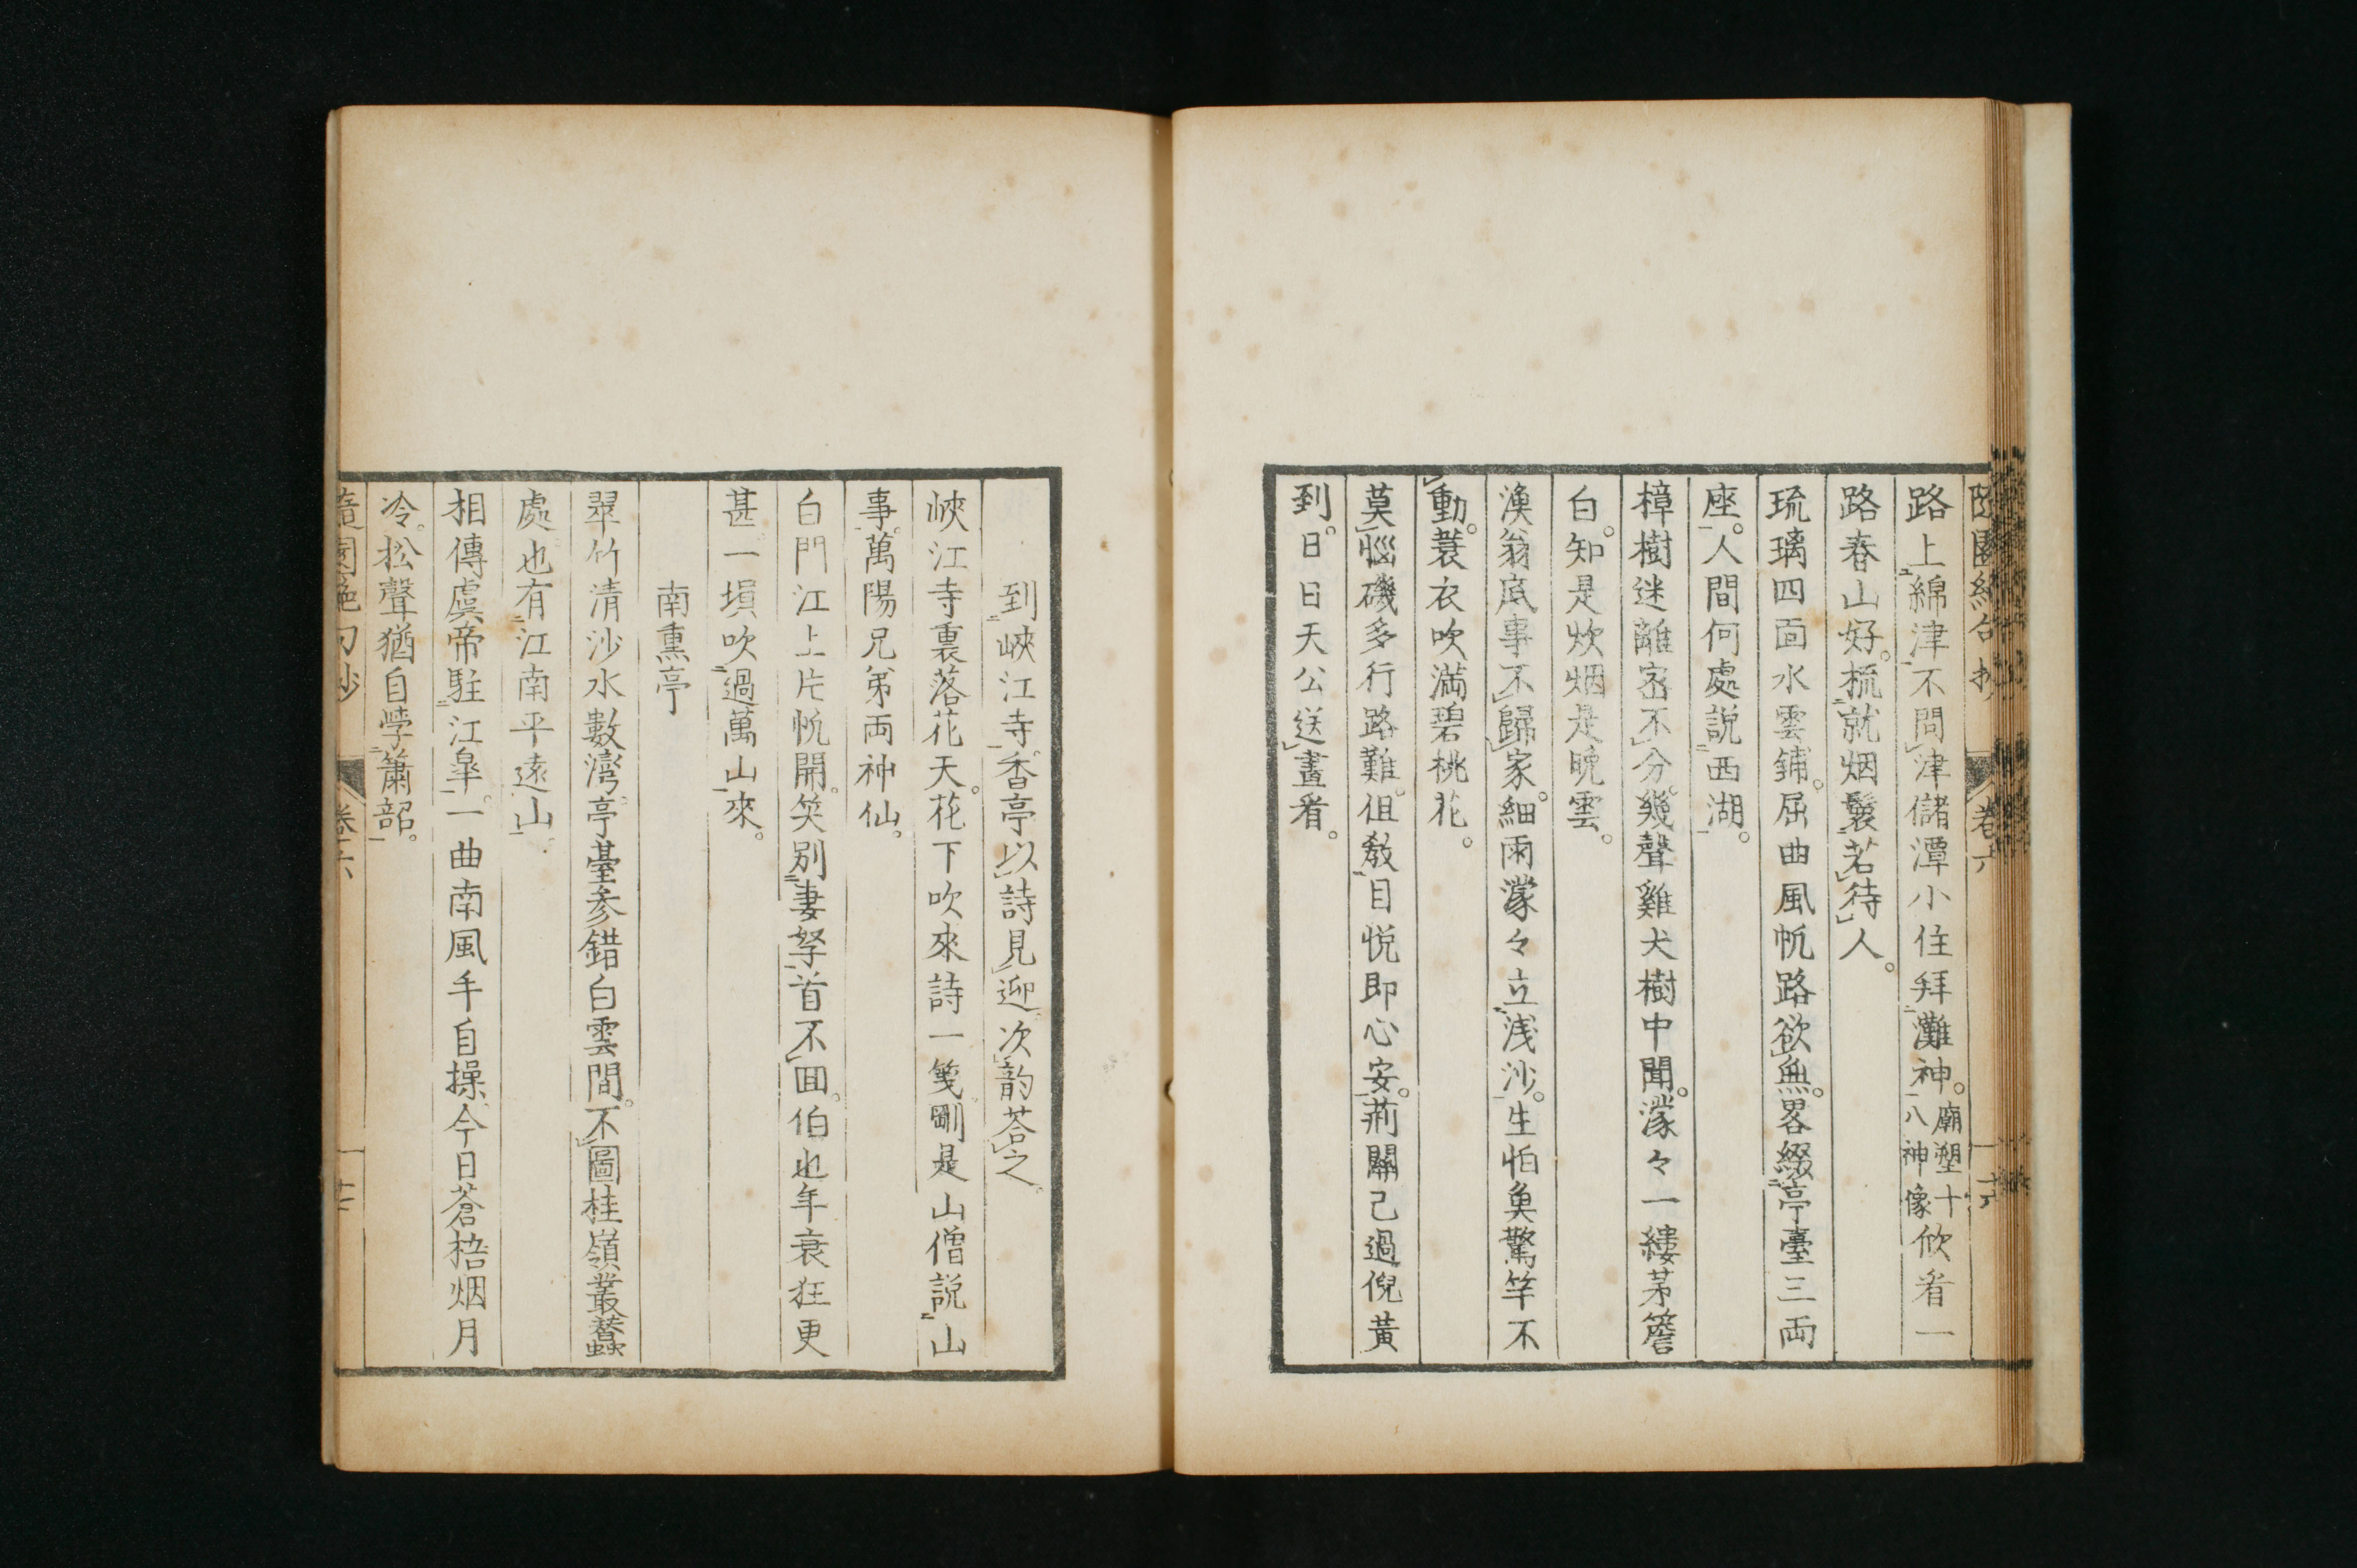 隨園絶句抄 卷六 十六
路上綿津不問津儲潭小住拜灘神。廟塑十八神像欣看一
路春山好。梳就烟鬟若待人。
琉璃四面水雲鋪。屈曲風帆路欲無。畧綴亭臺三兩
座。人間何處說西湖。
樟樹迷離密不分。幾聲雞犬樹中聞。濛々一縷茅簷
白。知是炊烟是晚雲。
漁翁底事不歸家。細雨濛々立浅沙。生怕魚驚竿不
動。蓑衣吹滿碧桃花。
莫惱磯多行路難。但教目悦即心安。荊關已過倪黃
到。日日天公送畫看。
到峽江寺香亭以詩見迎次韵荅之
峽江寺裏落花天。花下吹來詩一箋。剛是山僧說山
事。萬陽兄弟兩神仙。
白門江上片帆開。笑別妻孥首不回。伯也年衰狂更
甚一塤吹過萬山來。
南熏亭
翠竹清沙水數灣亭臺参錯白雲間。不圖桂嶺叢蠶
處也有江南平遠山。
相傳虞帝駐江皐。一曲南風手自操今日蒼梧烟月
冷。松聲猶自學簫韶。
隨園絶句抄 卷六